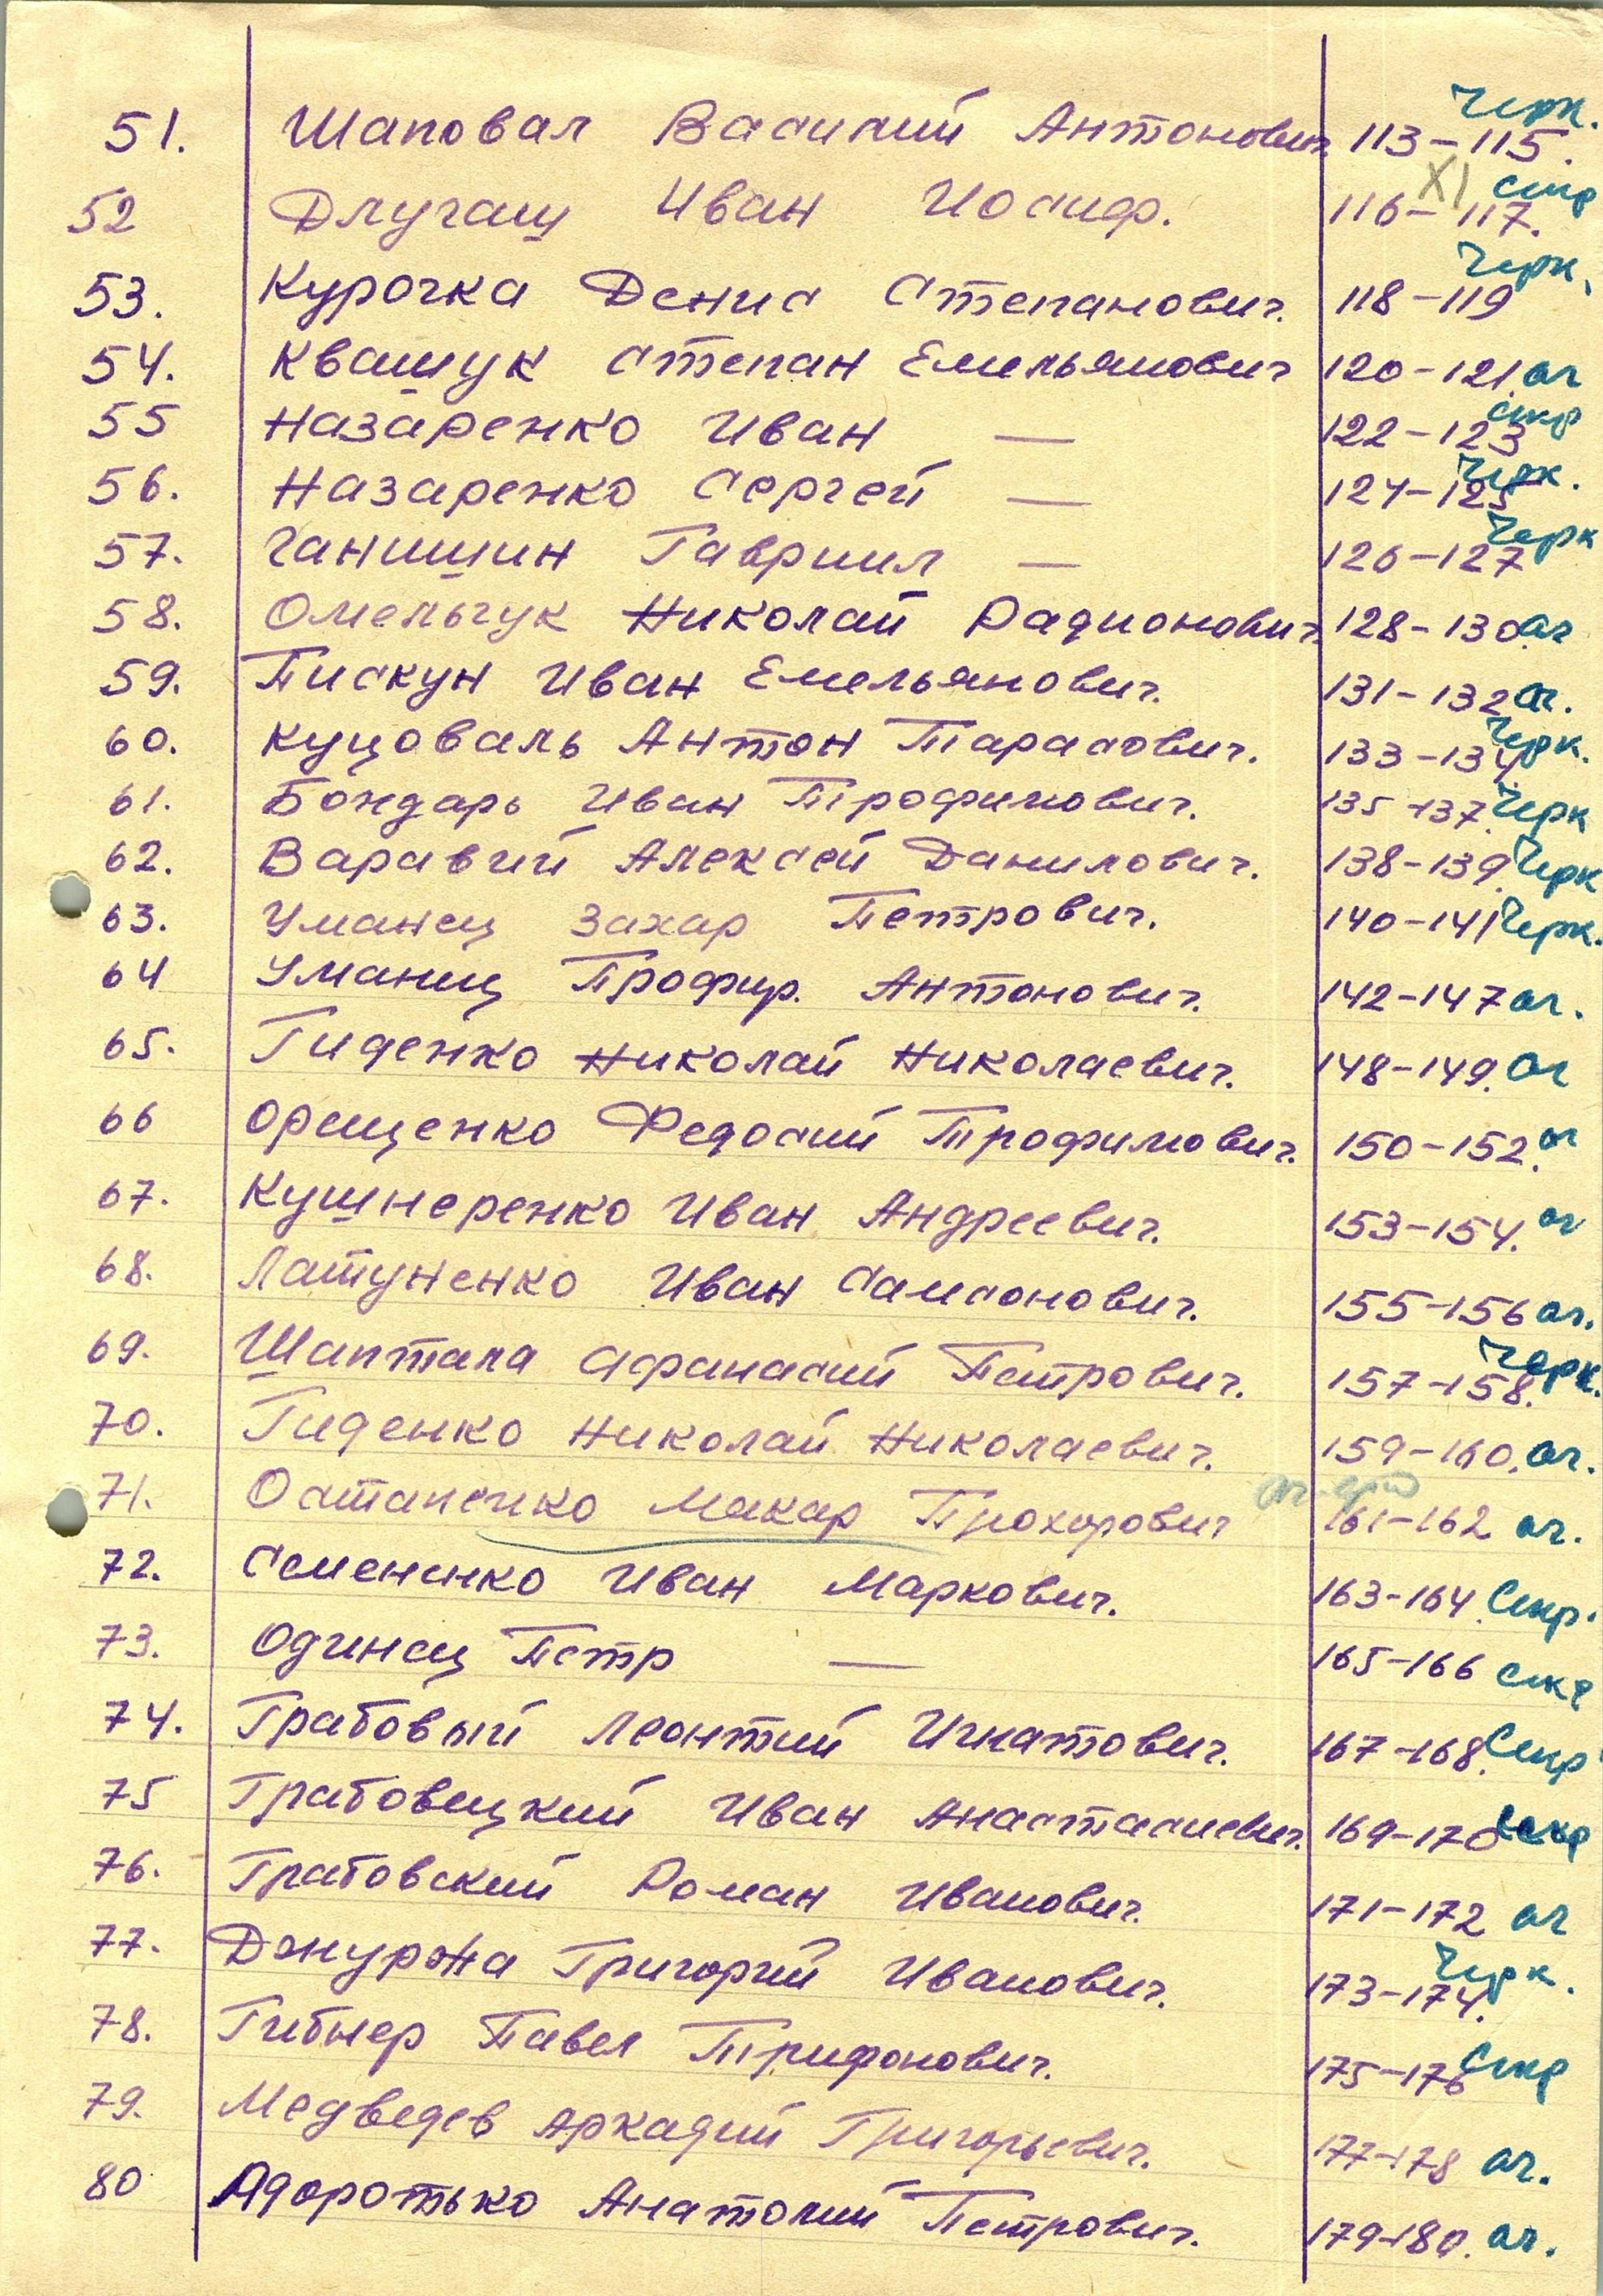 51. Шаповал Василий Антонович. 113-115. Черк.
52 Длугащ Иван Иосиф. 116-117. XI скр
53. Курочка Денис Степанович. 118-119 Черк.
54. Квашук Степан Емельянович 120-121 ог
55 Назаренко Иван — 122-123 скр
56. Назаренко Сергей — 124-125 Черк.
57. Ганишин Гавриил — 126-127 Черк
58. Омельчук Николай Радионович. 128-130. ог
59. Пискун Иван Емельянович. 131-132 ог.
60. Куцоваль Антон Тарасович. 133-134. Черк.
61. Бондарь Иван Трофимович. 135-137. Черк
62. Варавий Алексей Данилович. 138-139. Черк
63. Уманец Захар Петрович. 140-141 Черк.
64 Уманец Профир. Антонович. 142-147 ог.
65. Гиденко Николай Николаевич. 148-149. ог
66 Орещенко Федосий Трофимович. 150-152. ог
67. Кушнеренко Иван Андреевич. 153-154. ог
68. Латуненко Иван Самсонович. 155-156 ог.
69. Шаптала Афанасий Петрович. 157-158. Черк.
70. Гиденко Николай Николаевич. 159-160. ог.
71. Остапенко Макар Прохорович 161-162 ог.
72. Семененко Иван Маркович. 163-164. Скр.
73. Одинец Петр — 165-166 скр
74. Грабовый Леонтий Игнатович. 167-168. Скр
75 Грабовецкий Иван Анастасиевич. 169-170 скр
76. Грабовский Роман Иванович. 171-172 ог
77. Джурджа Григорий Иванович. 173-174. Черк.
78. Гибнер Павел Трифонович. 175-176 Скр
79. Медведев Аркадий Григорьевич. 177-178 ог.
80 Адоротько Анатолий Петрович. 179-180. ог.